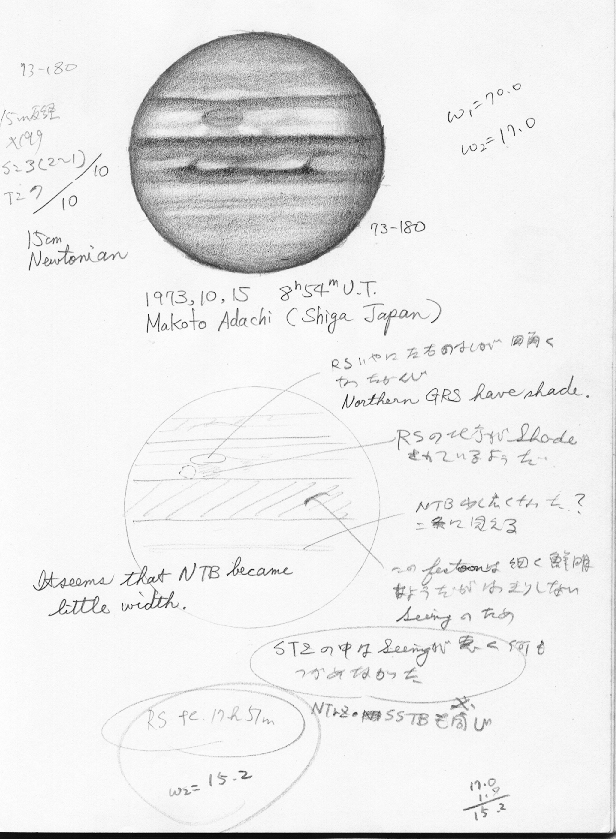 73-180
15cm
×199
S=3(2~1)/10
T=7/10
15cm
Newtonian
ω1=70.0
ω2=17.0
73-180
1973,10,15 8h54m U.T.
Makoto Adachi (Shiga Japan)
Northern GRS have shade.
RSの北方がShade
されているようだ..
NTB
二条に見える
It seems that NTB became
little width.
この festoonは 細く 鮮明
なようだがはっきりしない
Seeing のため
STZの中はSeeingが悪く何も
つかめなかった
SSTBも同じ
RS 17h 57m
ω2=15.2
17.0
15.2